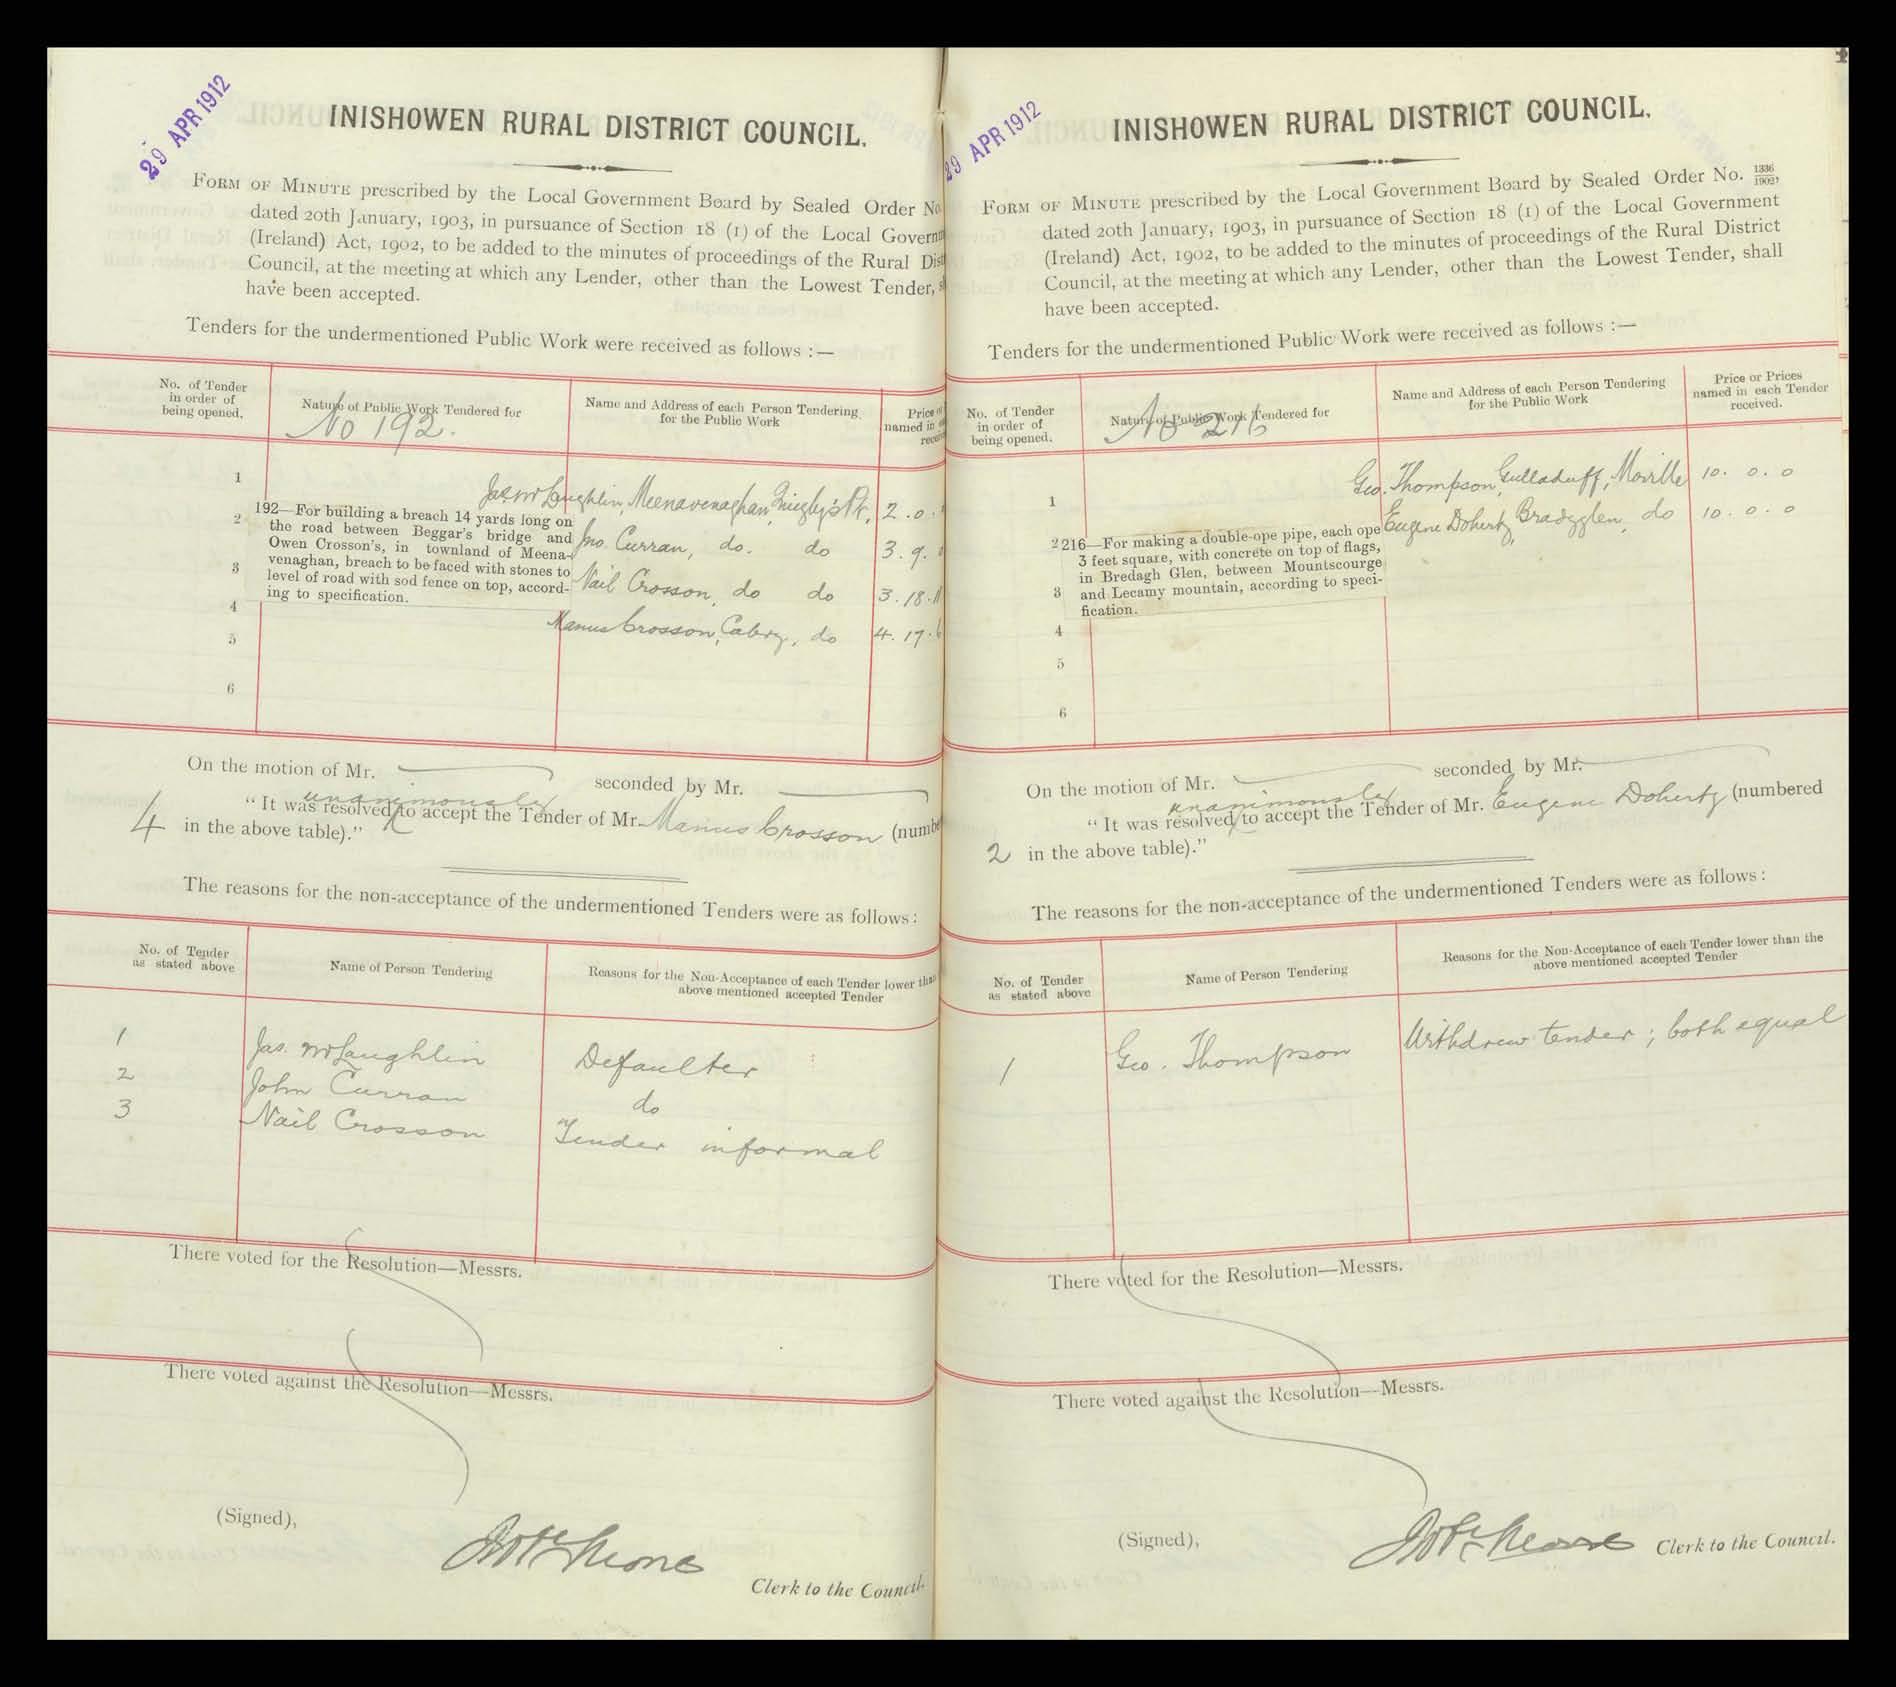 29 APR 1912
INISHOWEN RURAL DISTRICT COUNCIL.
FORM OF MINUTE prescribed by the Local Government Board by Sealed Order No.
dated 20th January, 1903, in pursuance of Section 18 (1) of the Local Governm
(Ireland) Act, 1902, to be added to the minutes of proceedings of the Rural Dist
Council, at the meeting at which any Lender, other than the Lowest Tender, s
have been accepted.
Tenders for the undermentioned Public Work were received as follows :—
No. of Tender
in order of
being opened.
Nature of Public Work Tendered for
No 192.
Name and Address of each Person Tendering
for the Public Work
Price or
named in
recei
1
2
3
4
5
6
192—For building a breach 14 yards long on
the road between Beggar's bridge and
Owen Crosson's, in townland of Meena-
venaghan, breach to be faced with stones to
level of road with sod fence on top, accord-
ing to specification.
Jas. McLaughlin, Meenavenaghan, Quigley's Pt, 2.0.
Jno. Curran, do. do 3.9.
Nail Crosson, do do 3.18.11
Manus Crosson, Cabry, do 4.17.6
On the motion of Mr. seconded by Mr.
unanimously
"It was resolved to accept the Tender of Mr. Manus Crosson (numbe
4 in the above table)."
The reasons for the non-acceptance of the undermentioned Tenders were as follows:
No. of Tender
as stated above
Name of Person Tendering
Reasons for the Non-Acceptance of each Tender lower than
above mentioned accepted Tender
1 Jas. McLaughlin Defaulter
2 John Curran do
3 Nail Crosson Tender informal
There voted for the Resolution—Messrs.
There voted against the Resolution—Messrs.
(Signed),
Clerk to the Council.
29 APR 1912
INISHOWEN RURAL DISTRICT COUNCIL.
FORM OF MINUTE prescribed by the Local Government Board by Sealed Order No. 1336/1902,
dated 20th January, 1903, in pursuance of Section 18 (1) of the Local Government
(Ireland) Act, 1902, to be added to the minutes of proceedings of the Rural District
Council, at the meeting at which any Lender, other than the Lowest Tender, shall
have been accepted.
Tenders for the undermentioned Public Work were received as follows :—
No. of Tender
in order of
being opened.
Nature of Public Work Tendered for
No 216
Name and Address of each Person Tendering
for the Public Work
Price or Prices
named in each Tender
received.
1
2
3
4
5
6
216—For making a double-ope pipe, each ope
3 feet square, with concrete on top of flags,
in Bredagh Glen, between Mountscourge
and Lecamy mountain, according to speci-
fication.
Geo. Thompson, Gulladuff, Moville 10. 0. 0
Eugene Doherty, Bradyglen, do 10. 0. 0
On the motion of Mr. seconded by Mr.
unanimously
"It was resolved to accept the Tender of Mr. Eugene Doherty (numbered
2 in the above table)."
The reasons for the non-acceptance of the undermentioned Tenders were as follows:
No. of Tender
as stated above
Name of Person Tendering
Reasons for the Non-Acceptance of each Tender lower than the
above mentioned accepted Tender
1 Geo. Thompson Withdrew tender; both equal
There voted for the Resolution—Messrs.
There voted against the Resolution—Messrs.
(Signed),
Clerk to the Council.